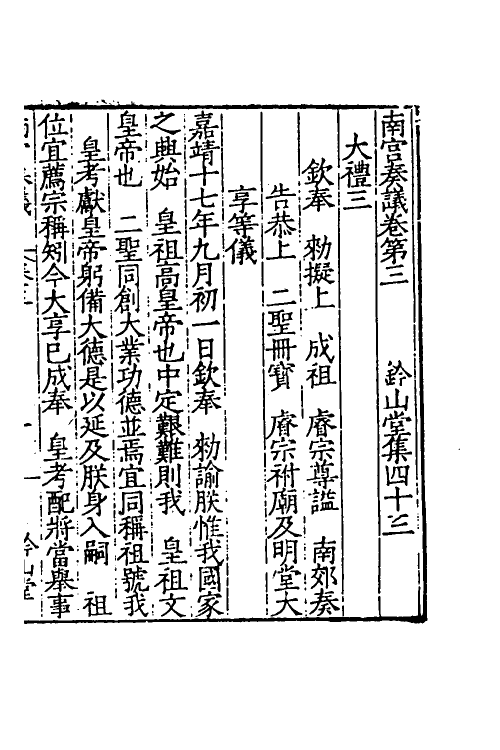 南宮奏議卷第三　鈐山堂集四十三
大禮三
欽奉　勑擬上　成祖　睿宗尊謚　南郊奏
告恭上　二聖冊寶　睿宗祔廟及明堂大
享等儀
嘉靖十七年九月初一日欽奉　勑諭朕惟我國家
之興始　皇祖高皇帝也中定艱難則我　皇祖文
皇帝也　二聖同創大業功德並焉宜同稱祖號我
皇考獻皇帝躬備大德是以延及朕身入嗣　祖
位宜薦宗稱矧今大享已成奉　皇考配將當舉事